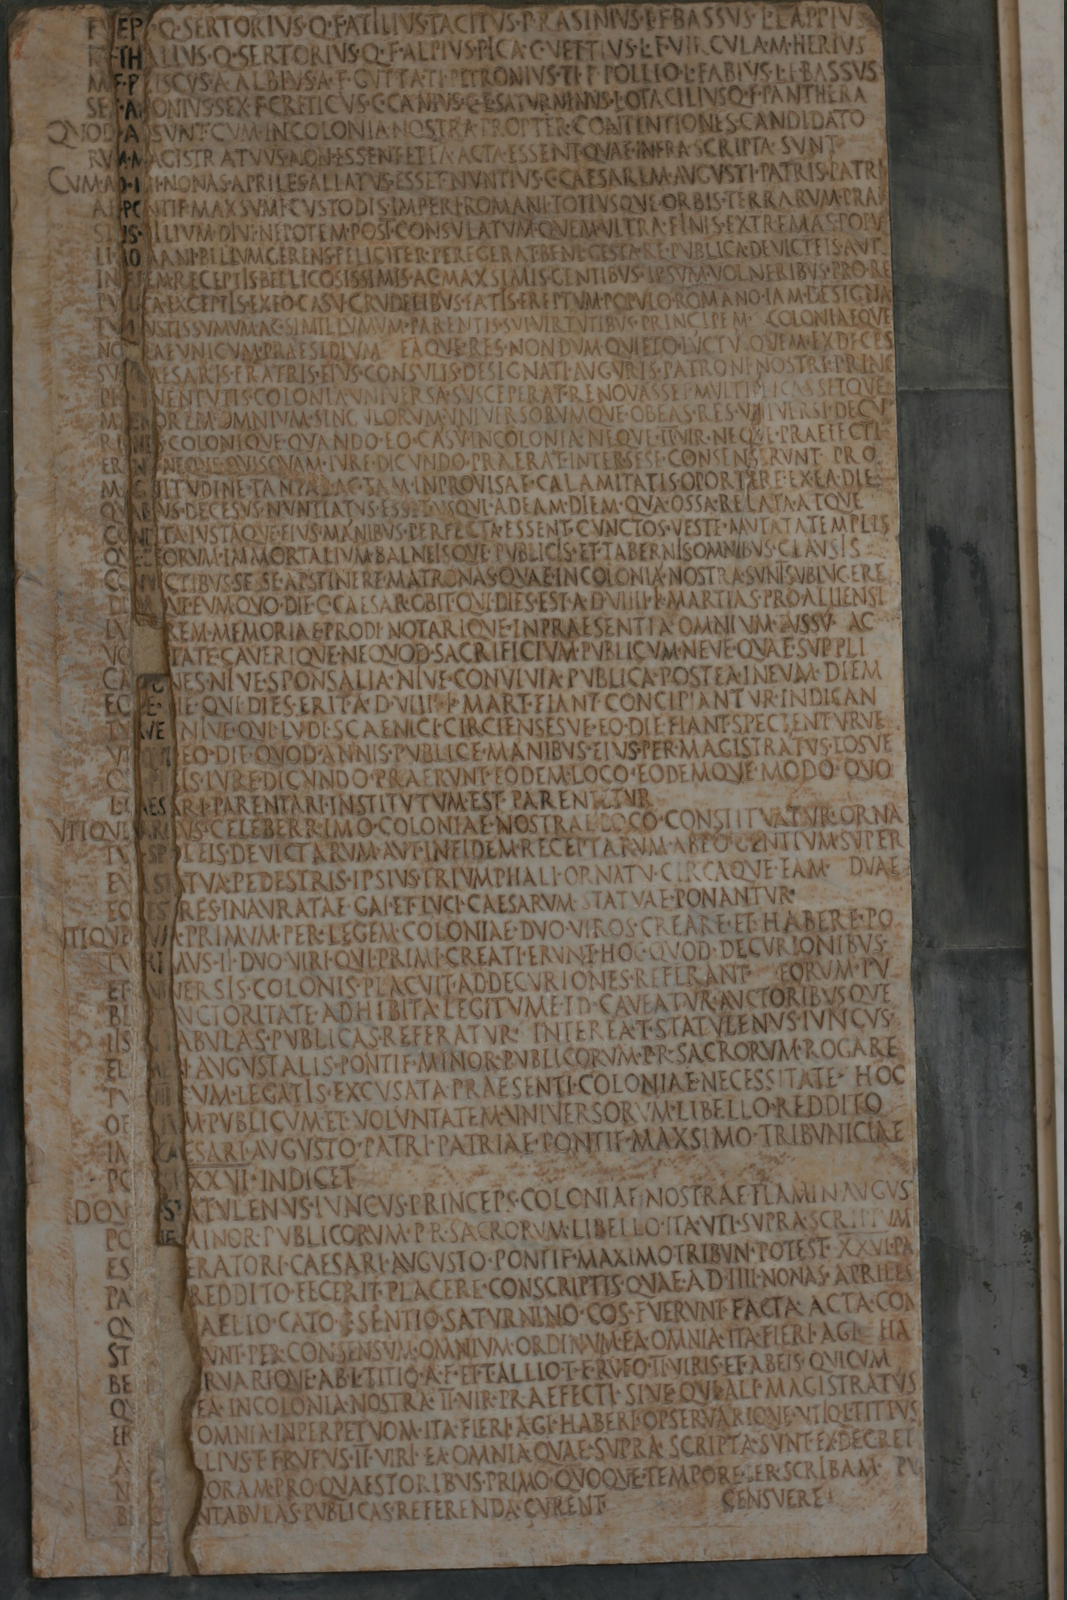 EP Q·SERTORIVS·Q·F·ATILIVS·TACITVS·P·RASINIVS·L·F·BASSVS·L·LAPPIVS
TH ALLVS·Q·SERTORIVS·Q·F·ALPIVS·PICA·C·VETTIVS·L·F·VIRGVLA·M·HERIVS
M·F·PRISCVS·A·ALBIVS·A·F·GVTTA·TI·PETRONIVS·TI·F·POLLIO·L·FABIVS·L·F·BASSVS
SEX·APONIVS·SEX·F·CRETICVS·C·CANIVS·C·F·SATVRNINVS·L·OTACILIVS·Q·F·PANTHERA
QVOD·ADSVNT·CVM·IN·COLONIA·NOSTRA·PROPTER·CONTENTIONES·CANDIDATO
RVM·MAGISTRATVVS·NON·ESSENT·ET·EA·ACTA·ESSENT·QVAE·INFRA·SCRIPTA·SVNT
CVM·A·D·IIII·NONAS·APRILES·ALLATVS·ESSET·NVNTIVS·C·CAESAREM·AVGVSTI·PATRIS·PATRI
AE·PONTIF·MAXSVMI·CVSTODIS·IMPERI·ROMANI·TOTIVSQVE·ORBIS·TERRARVM·PRAE
SIDIS·FILIVM·DIVI·NEPOTEM·POST·CONSVLATVM·QVEM·VLTRA·FINIS·EXTREMAS·POPV
LI·ROMANI·BELLVM·GERENS·FELICITER·PEREGERAT·BENE·GESTA·RE·PVBLICA·DEVICTEIS·AVT
IN FIDEM·RECEPTIS·BELLICOSISSIMIS·AC·MAXSIMIS·GENTIBVS·IPSVM·VOLNERIBVS·PRO·RE
PVBLICA·EXCEPTIS·EX·EO·CASV·CRVDELIBVS·FATIS·EREPTVM·POPVLO·ROMANO·IAM·DESIGNA
TVM·IVSTISSVMVM·AC·SIMILLVMVM·PARENTIS·SVI·VIRTVTIBVS·PRINCIPEM· COLONIAEQVE
NOSTRAE·VNICVM·PRAESIDIVM· EAQVE·RES·NONDVM·QVIETO·LVCTV·QVEM·EX·DECES
SV·L·CAESARIS·FRATRIS·EIVS·CONSVLIS·DESIGNATI·AVGVRIS·PATRONI·NOSTRI·PRINC
IVVENTVTIS·COLONIA·VNIVERSA·SVSCEPERAT·RENOVASSET·MVLTIPLICASSETQVE
MAEROREM·OMNIVM·SINGVLORVM·VNIVERSORVMQVE·OB·EAS·RES·VNIVERSI·DECV
RIONES·COLONIQVE·QVANDO·EO·CASV·IN·COLONIA·NEQVE·II·VIR·NEQVE·PRAEFECTI
ERANT·NEQVE·QVISQVAM·IVRE·DICVNDO·PRAERAT·INTER·SESE·CONSENSERVNT·PRO
MAGNITVDINE·TANTAE·AC·TAM·INPROVISAE·CALAMITATIS·OPORTERE·EX·EA·DIE
QVA·EIVS·DECESVS·NVNTIATVS·ESSET·VSQVE·AD·EAM·DIEM·QVA·OSSA·RELATA·ATQVE
CONDITA·IVSTAQVE·EIVS·MANIBVS·PERFECTA·ESSENT·CVNCTOS·VESTE·MVTATA·TEMPLIS
QVE DEORVM·IMMORTALIVM·BALNEISQVE·PVBLICIS·ET·TABERNIS·OMNIBVS·CLAVSIS
CONVICTIBVS·SESE·APSTINERE·MATRONAS·QVAE·IN·COLONIA·NOSTRA·SVNT·SVBLVGERE
DIEMQVE·EVM·QVO·DIE·C·CAESAR·OBIT·QVI·DIES·EST·A·D·VIIII·K·MARTIAS·PRO·ALLIENSI
LVGVBREM·MEMORIAE·PRODI NOTARIQVE·IN·PRAESENTIA·OMNIVM·IVSSV· AC
VOLVNTATE·CAVERIQVE·NE·QVOD·SACRIFICIVM·PVBLICVM·NEVE·QVAE·SVPPLI
CATIONES·NIVE·SPONSALIA·NIVE·CONVIVIA·PVBLICA·POSTEA·IN·EVM· DIEM
EOVE DIE·QVI·DIES·ERIT·A·D·VIIII·K·MART·FIANT·CONCIPIANTVR·INDICAN
TVRVE·NIVE·QVI·LVDI·SCAENICI·CIRCIENSESVE·EO·DIE·FIANT·SPECTENTVRVE
VTIQVE EO·DIE·QVOD·ANNIS·PVBLICE·MANIBVS·EIVS·PER·MAGISTRATVS·EOSVE
QVI·PISIS·IVRE·DICVNDO·PRAERVNT·EODEM·LOCO·EODEMQVE·MODO·QVO
L·CAESARI·PARENTARI·INSTITVTVM·EST·PARENTETVR
VTIQVE ARCVS·CELEBERRIMO·COLONIAE·NOSTRAE·LOCO·CONSTITVATVR·ORNA
TVS·SPOLEIS·DEVICTARVM·AVT·IN·FIDEM·RECEPTARVM·AB·EO·GENTIVM·SVPER
EVM STATVA·PEDESTRIS·IPSIVS·TRIVMPHALI·ORNATV·CIRCAQVE·EAM· DVAE
EQVESTRES·INAVRATAE·GAI·ET·LVCI·CAESARVM·STATVAE·PONANTVR·
VTIQVE CVM·PRIMVM·PER·LEGEM·COLONIAE·DVO·VIROS·CREARE·ET·HABERE·PO
TVERIMVS·II·DVO·VIRI·QVI·PRIMI·CREATI·ERVNT·HOC·QVOD·DECVRIONIBVS
ET·VNIVERSIS·COLONIS·PLACVIT·AD·DECVRIONES·REFERANT· EORVM·PV
BLICA AVCTORITATE·ADHIBITA·LEGITVME·ID·CAVEATVR·AVCTORIBVSQVE
IIS IN TABVLAS·PVBLICAS·REFERATVR· INTEREA·T·STATVLENVS·IVNCVS
FLAMEN AVGVSTALIS·PONTIF·MINOR·PVBLICORVM·P·R·SACRORVM·ROGARE
TVR VTI CVM·LEGATIS·EXCVSATA·PRAESENTI·COLONIAE·NECESSITATE· HOC
OFFICIVM·PVBLICVM·ET·VOLVNTATEM·VNIVERSORVM·LIBELLO·REDDITO
IMP CAESARI·AVGVSTO·PATRI·PATRIAE·PONTIF·MAXSIMO·TRIBVNICIAE
POT XXVI·INDICET
IDQVE T STATVLENVS·IVNCVS·PRINCEPS·COLONIAE·NOSTRAE·FLAMIN·AVGVS
PONTIF MINOR·PVBLICORVM·P·R·SACRORVM·LIBELLO·ITA·VTI·SVPRA·SCRIPTVM
EST IMPERATORI·CAESARI·AVGVSTO·PONTIF·MAXIMO·TRIBVN·POTEST·XXVI·PA
PA REDDITO·FECERIT·PLACERE·CONSCRIPTIS·QVAE·A·D·IIII·NONAS·APRILES
QVAE AELIO·CATO·C·SENTIO·SATVRNINO·COS·FVERVNT·FACTA·ACTA·CON
STITVTA SVNT·PER·CONSENSVM·OMNIVM·ORDINVM·EA·OMNIA·ITA·FIERI·AGI· HA
BERI OBSERVARIQVE·AB·L·TITIO·A·F·ET·T·ALLIO·T·F·RVFO·II·VIRIS·ET·AB·EIS·QVICVM
QVE POSTEA·IN·COLONIA·NOSTRA·II·VIR·PRAEFECTI·SIVE·QVI·ALI·MAGISTRATVS
ERVNT OMNIA·IN·PERPETVOM·ITA·FIERI·AGI·HABERI·OPSERVARIQVE·VTIQ·L·TITIVS
A·F·T·ALLIVS·T·F·RVFVS·II·VIRI· EA·OMNIA·QVAE·SVPRA·SCRIPTA·SVNT·EX·DECRET
NOSTRO CORAM·PRO·QVAESTORIBVS·PRIMO·QVOQVE·TEMPORE·PER·SCRIBAM· PV
BLICVM IN·TABVLAS·PVBLICAS·REFERENDA·CVRENT CENSVERE